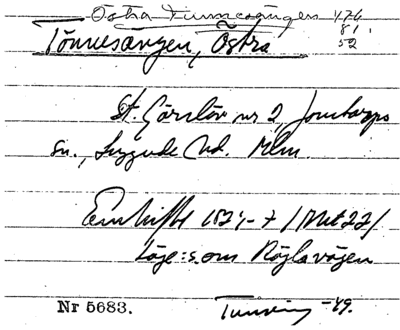 Östra Tunnesången 476
81,
52
Tönnesången, Östra
St. Görslöv nr 2, Jonstorps
sn., Luggude hd. Mlm.
Enskifte 1827 /Akt 22/
Läge: som Röglavägen
Nr 5683. Tuneving -49.